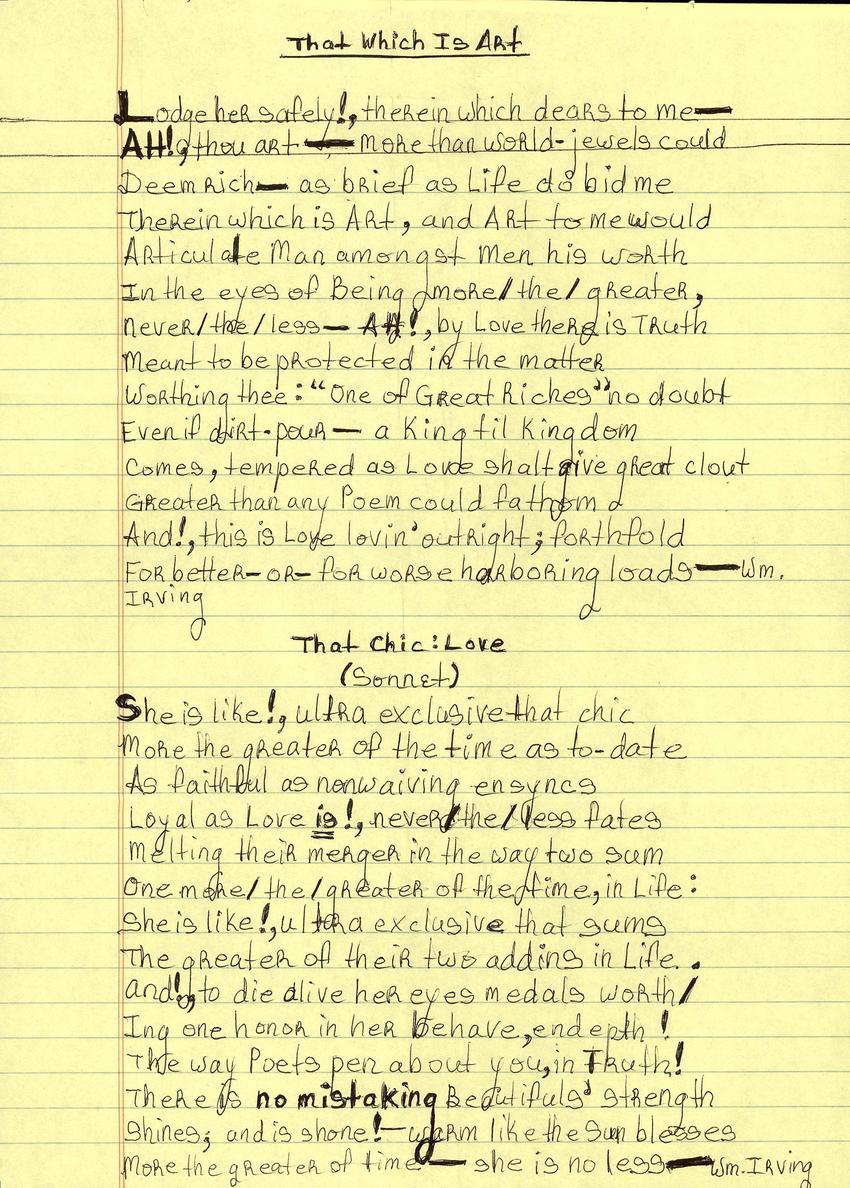 That Which Is Art
Lodge her safely!, therein which dears to me—
AH!, thou art — more than world-jewels could
Deem rich— as brief as Life do bid me
Therein which is Art, and Art to me would
Articulate Man amongst Men his worth
In the eyes of Being more/the/greater,
never/the/less— AH!, by Love there is Truth
Meant to be protected in the matter
Worthing thee: "One of Great Riches" no doubt
Even if dirt-pour— a King til Kingdom
Comes, tempered as Love shalt give great clout
Greater than any Poem could fathom
And!, this is Love lovin' outright; forthfold
For better-or-for worse harboring loads—Wm.
Irving
That Chic: Love
(Sonnet)
She is like!, ultra exclusive that chic
More the greater of the time as to-date
As faithful as nonwaiving ensyncs
Loyal as Love is!, never/the/less fates
Melting their merger in the way two sum
One more/the/greater of the time, in Life:
She is like!, ultra exclusive that sums
The greater of their two adding in Life..
And!, to die alive her eyes medals worth/
Ing one honor in her behave, endepth!
The way Poets pen about you, in Truth!
There is no mistaking Beautifuls' strength
Shines; and is shone!—warm like the Sun blesses
More the greater of time— she is no less—Wm. Irving